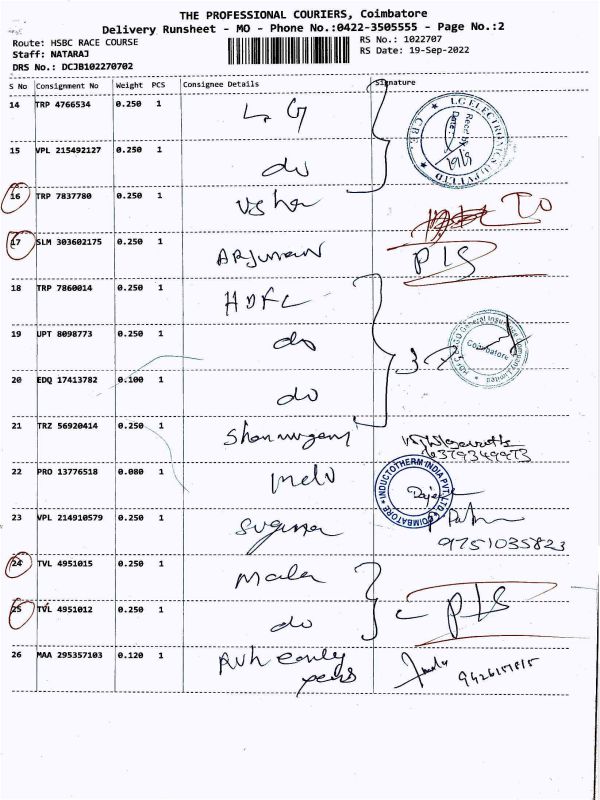 THE PROFESSIONAL COURIERS, Coimbatore
Delivery Runsheet - MO - Phone No.:0422-3505555 - Page No.:2
Route: HSBC RACE COURSE
RS No.: 1022707
Staff: NATARAJ
RS Date: 19-Sep-2022
DRS No.: DCJB102270702
S No Consignment No Weight PCS Consignee Details Signature
14 TRP 4766534 0.250 1 LG
LG ELECTRONICS
15 VPL 215492127 0.250 1 do
16 TRP 7837780 0.250 1 Usha
17 SLM 303602175 0.250 1 Arjunan PLS
18 TRP 7860014 0.250 1 HDFC
19 UPT 8098773 0.250 1 do 3
HDFC ERGO General Insurance Company Limited
Coimbatore
20 EDQ 17413782 0.100 1 do
21 TRZ 56920414 0.250 1 Shanmugam
6379349973
22 PRO 13776518 0.080 1
INDUCTOTHERM INDIA PVT. LTD. COIMBATORE
23 VPL 214910579 0.250 1
9751035823
24 TVL 4951015 0.250 1 Mala
25 TVL 4951012 0.250 1 do PLS
26 MAA 295357103 0.120 1 Ruh early years